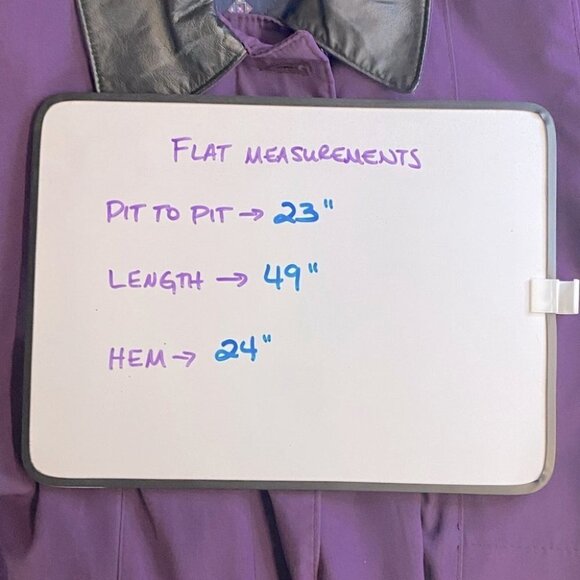 FLAT MEASUREMENTS
PIT TO PIT → 23"
LENGTH → 49"
HEM → 24"